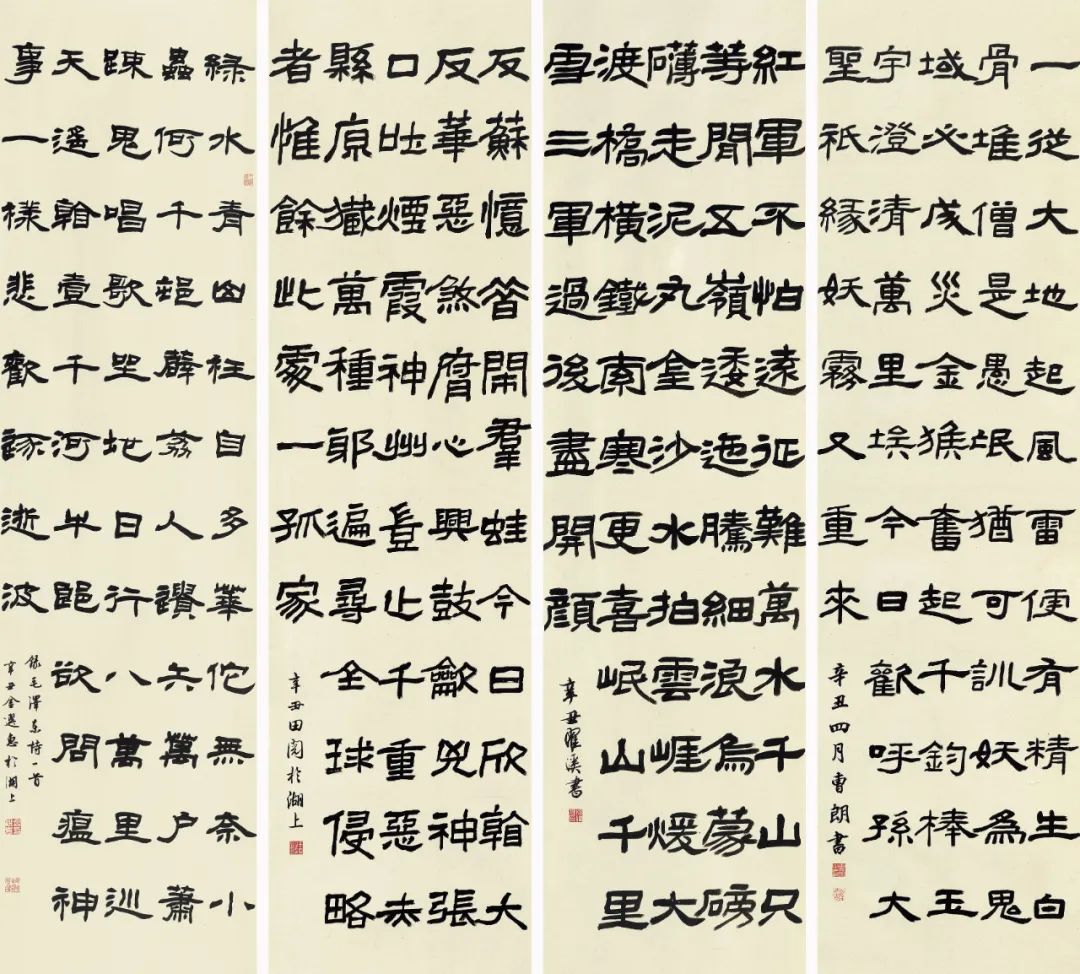 一從大地起風雷便有精生白
骨堆僧是愚氓猶可訓妖為鬼
域必成災金猴奮起千鈞棒玉
宇澄清萬里埃今日歡呼孫大
聖祇緣妖霧又重來
辛丑四月曹朗書
紅軍不怕遠征難萬水千山只
等閒五嶺逶迤騰細浪烏蒙磅
礴走泥丸金沙水拍雲崖煖大
渡橋橫鐵索寒更喜岷山千里
雪三軍過後盡開顏
辛丑曜溪書
反蘇憶昔鬧羣蛙今日欣看大
反華惡煞腐心興鼓龡兇神張
口吐煙霞神州豈止千重惡赤
縣原藏萬種邪遍尋全球侵略
者惟餘此處一孤家
辛丑田園於湖上
綠水青山枉自多華佗無奈小
蟲何千邨薜荔人遺矢萬户蕭
踈鬼唱歌坐地日行八萬里巡
天遙看壹千河牛郎欲問瘟神
事一樣悲歡逐逝波
錄毛澤東詩一首
辛丑金選惠於湖上